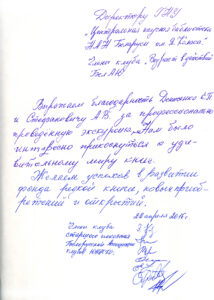 Директору ГНУ
"Центральная научная библиотека
НАН Беларуси им. Я. Коласа"
Члены клуба "Возраст в действии"
Выражаем благодарность
и Стефановичу А.В. за профессионально
проведенную экскурсию. Нам было
интересно прикоснуться к уди-
вительному миру книг.
Желаем успехов в развитии
фонда редкой книги, новых приоб-
ретений и открытий.
28 апреля 2015г.
Члены клуба
Белорусской ассоциации
клубов ЮНЕСКО.